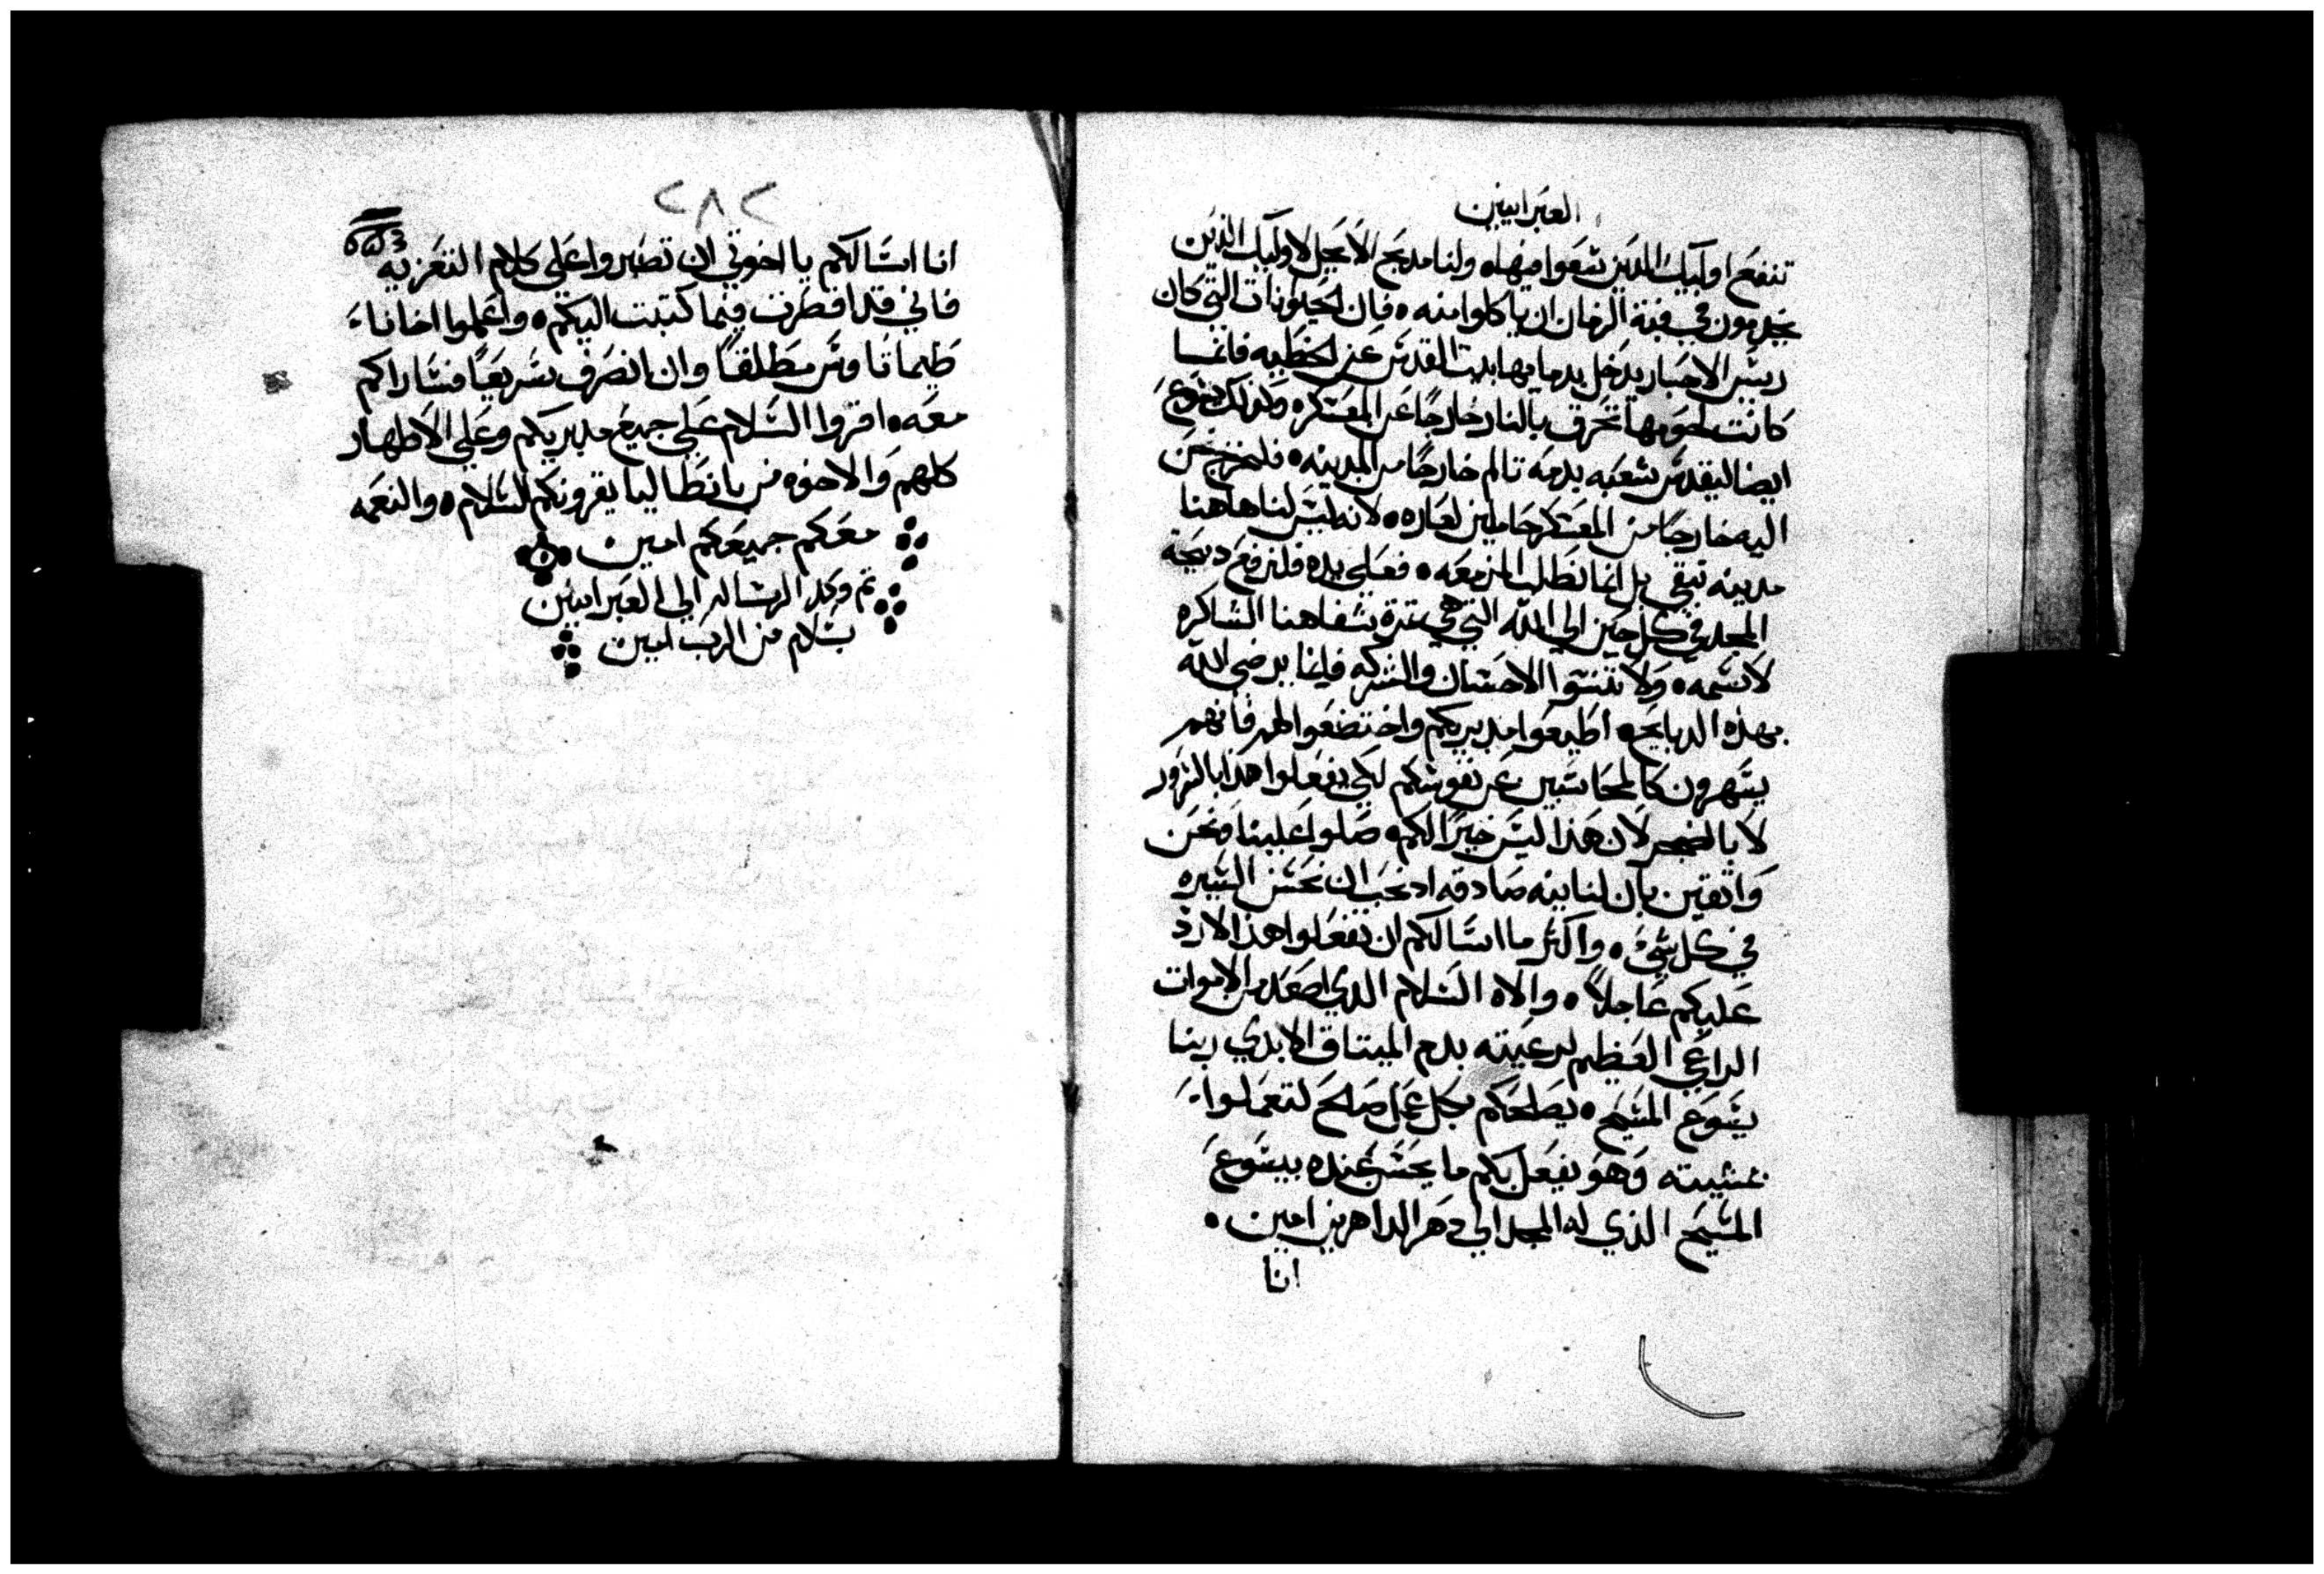 العبرانيين
تنتفع اوليك الدين سعوا فيها ولنا مدبح الا يحل لاوليك الذين
يخدمون في قبة الزمان ان ياكلوا منه فان الحيوانات التي كان
رييس الاحبار يدخل بدمايها بيت القدس عن الخطيه فانما
كانت لحومها تحرق بالنار خارجًا عن المعسكر ولذلك يسوع
ايضا ليقدس شعبه بدمه تالم خارجًا من المدينه فلنخرج نحن
اليه خارجًا من المعسكر حاملين لعاره لانه ليس لنا هاهنا
مدينه تبقي بل انما نطلب المزمعه فعلي يده فلنرفع دبيحة
المجد في كل حين الي الله التي هي تمرة شفاهنا الشاكره
لاسمه ولا تنسوا الاحسان والشركه فانما يرضي الله
بهذه الدبايح اطيعوا مدبريكم واختضعوا لهم فانهم
يسهرون كالمحاسبين عن نفوسكم لكي يفعلوا هدا بالسرور
لا بالضجر لان هذا ليس خيرًا لكم صلوا علينا ونحن
واتقين بان لنا نيه صادقه اد نحب ان نحسن السيره
في كل شيء واكتر ما اسالكم ان تفعلوا هذا لارد
عليكم عاجلاً والاه السلام الدي اصعد من الاموات
الراعي العظيم لرعيته بدم الميتاق الابدي ربنا
يسوع المسيح يصلحكم بكل عمل صالح لتعملوا
بمشيته وهو يفعل بكم ما يحسن عنده بيسوع
المسيح الذي له المجد الي دهر الداهرين امين
انا
٢٨٢
انا اسالكم يا اخوتي ان تصبروا علي كلام التعزيه
فاني قد اقصرت فيما كتبت اليكم واعلموا اخانا
طيماتاوس مطلقًا وان انصرف سريعًا فساراكم
معه اقروا السلام علي جميع مدبريكم وعلي الاطهار
كلهم والاخوه من بانطاليا يقرونكم السلام والنعمه
معكم جميعكم امين
تم وكمل الرساله الي العبرانيين
بسلام من الرب امين